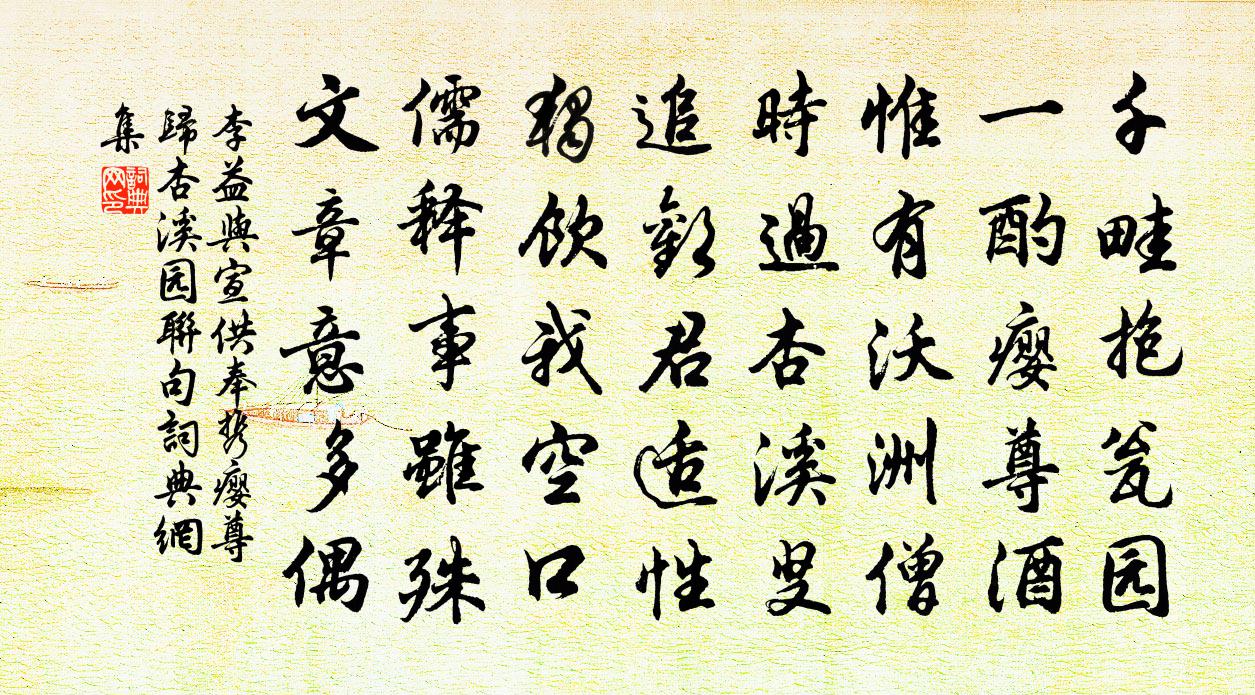 千畦抱瓮园
一酌瘿尊酒
惟有沃洲僧
時過杏溪叟
追歡君适性
獨飲我空口
儒释事雖殊
文章意多偶
李益與宣供奉携瘿尊
歸杏溪园聯句詞典網
集
詞典
网印